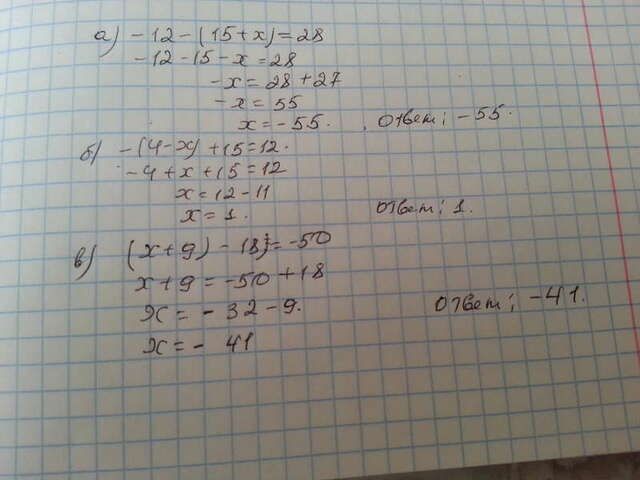 а) -12-(15+x)=28
-12-15-x=28
-x=28+27
-x=55
x=-55. Ответ: -55.
б) -(4-x)+15=12.
-4+x+15=12
x=12-11
x=1. Ответ: 1.
в) (x+9)-18=-50
x+9=-50+18
x=-32-9. Ответ: -41.
x=- 41